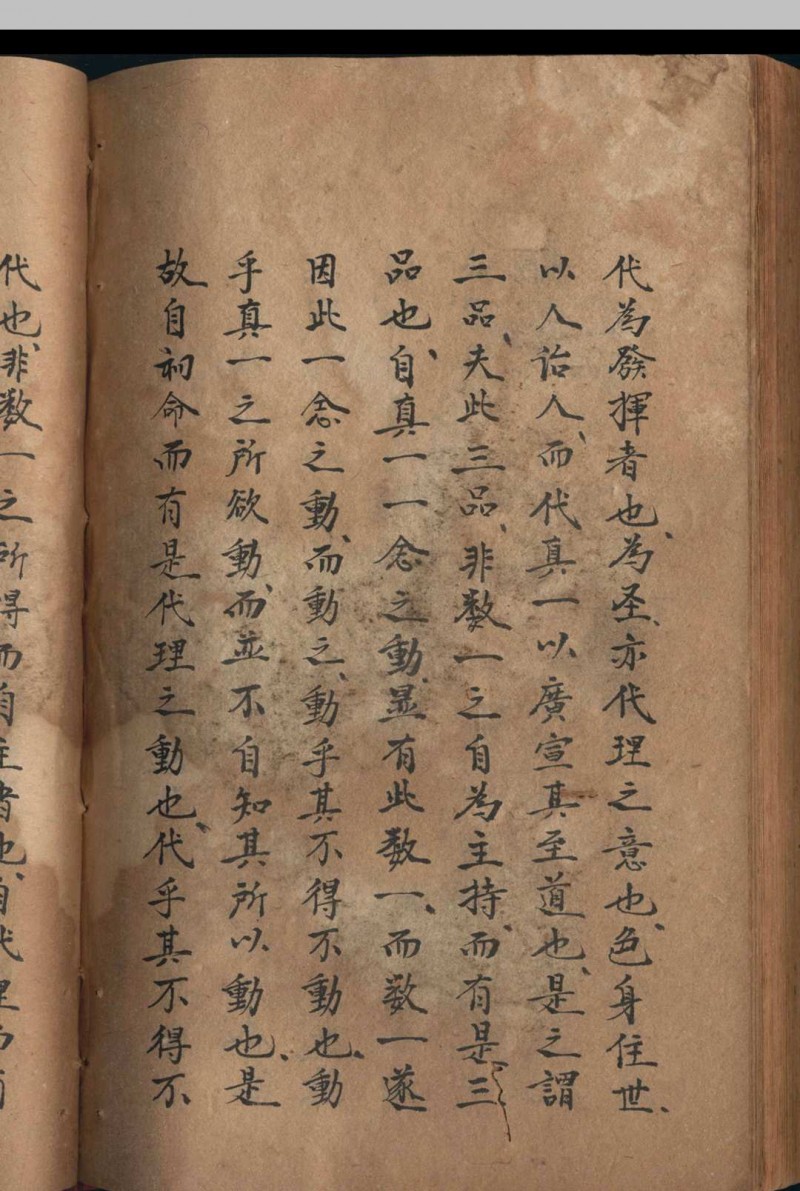 代為發揮者也、為圣、亦代理之意也、色身住世、
以人治人、而代真一以廣宣其至道也、是之謂
三品、夫此三品、非数一之自為主持、而有是三
品也、自真一一念之動、显有此数一、而数一遂
因此一念之動、而動之、動乎其不得不動也、動
乎真一之所欲動、而並不自知其所以動也、是
故自初命而有是代理之動也、代乎其不得不
代也、非数一之所得而自主者也、自代理而有